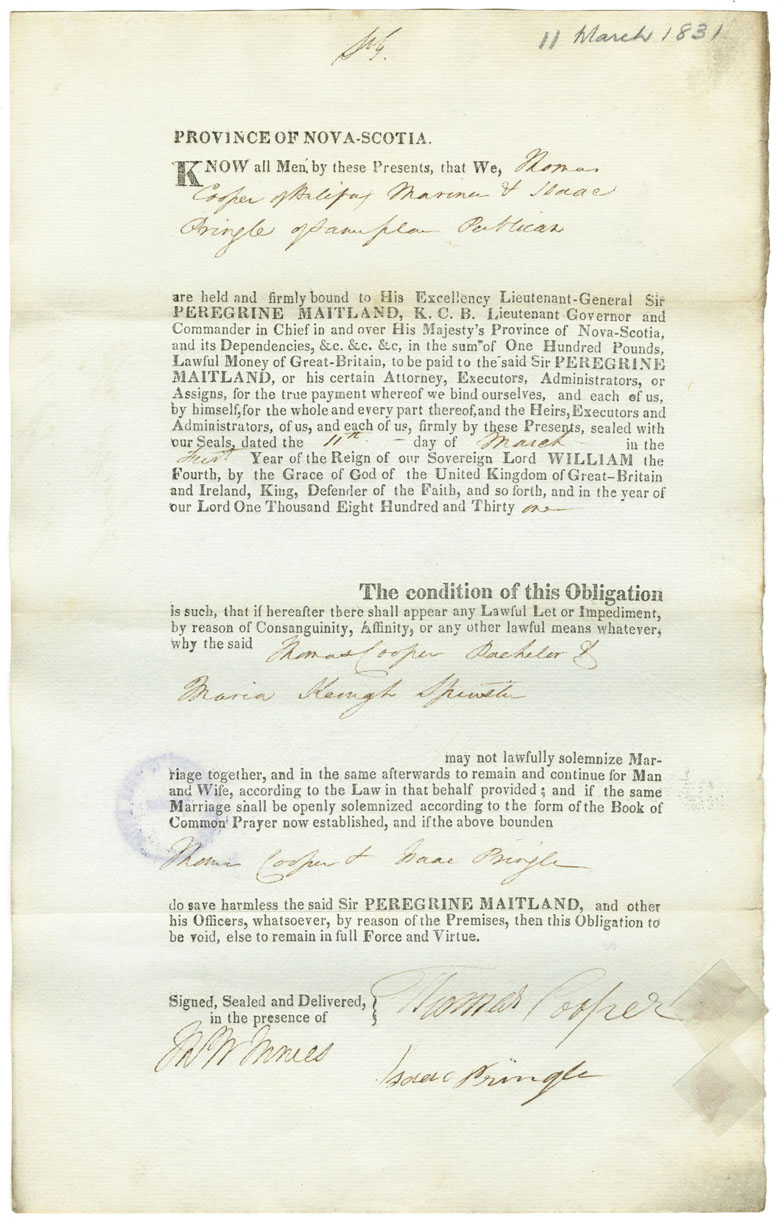 11 March 1831
PROVINCE OF NOVA-SCOTIA.
KNOW all Men, by these Presents, that We, Thomas
Cooper of Halifax Mariner & Isaac
Pringle of same place Publican
are held and firmly bound to His Excellency Lieutenant-General Sir
PEREGRINE MAITLAND, K. C. B. Lieutenant Governor and
Commander in Chief in and over His Majesty's Province of Nova-Scotia,
and its Dependencies, &c. &c. &c, in the sum of One Hundred Pounds,
Lawful Money of Great-Britain, to be paid to the said Sir PEREGRINE
MAITLAND, or his certain Attorney, Executors, Administrators, or
Assigns, for the true payment whereof we bind ourselves, and each of us,
by himself, for the whole and every part thereof, and the Heirs, Executors and
Administrators, of us, and each of us, firmly by these Presents, sealed with
our Seals, dated the 11th - day of March - in the
First Year of the Reign of our Sovereign Lord WILLIAM the
Fourth, by the Grace of God of the United Kingdom of Great-Britain
and Ireland, King, Defender of the Faith, and so forth, and in the year of
our Lord One Thousand Eight Hundred and Thirty one
The condition of this Obligation
is such, that if hereafter there shall appear any Lawful Let or Impediment,
by reason of Consanguinity, Affinity, or any other lawful means whatever,
why the said Thomas Cooper Bachelor &
Maria Keough Spinster
may not lawfully solemnize Mar-
riage together, and in the same afterwards to remain and continue for Man
and Wife, according to the Law in that behalf provided ; and if the same
Marriage shall be openly solemnized according to the form of the Book of
Common Prayer now established, and if the above bounden
Thomas Cooper & Isaac Pringle
do save harmless the said Sir PEREGRINE MAITLAND, and other
his Officers, whatsoever, by reason of the Premises, then this Obligation to
be void, else to remain in full Force and Virtue.
Signed, Sealed and Delivered,
in the presence of
Thomas Cooper
Isaac Pringle